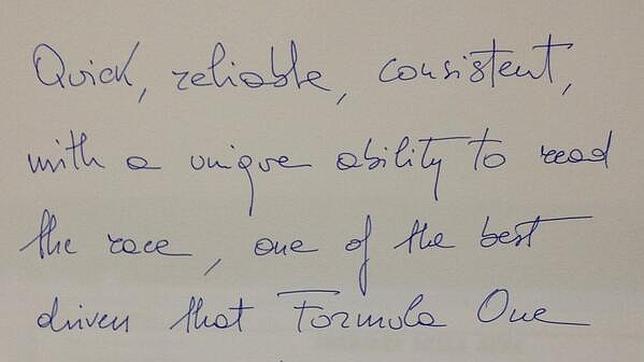 Quick, reliable, consistent,
with a unique ability to read
the race, one of the best
driven that Formula One